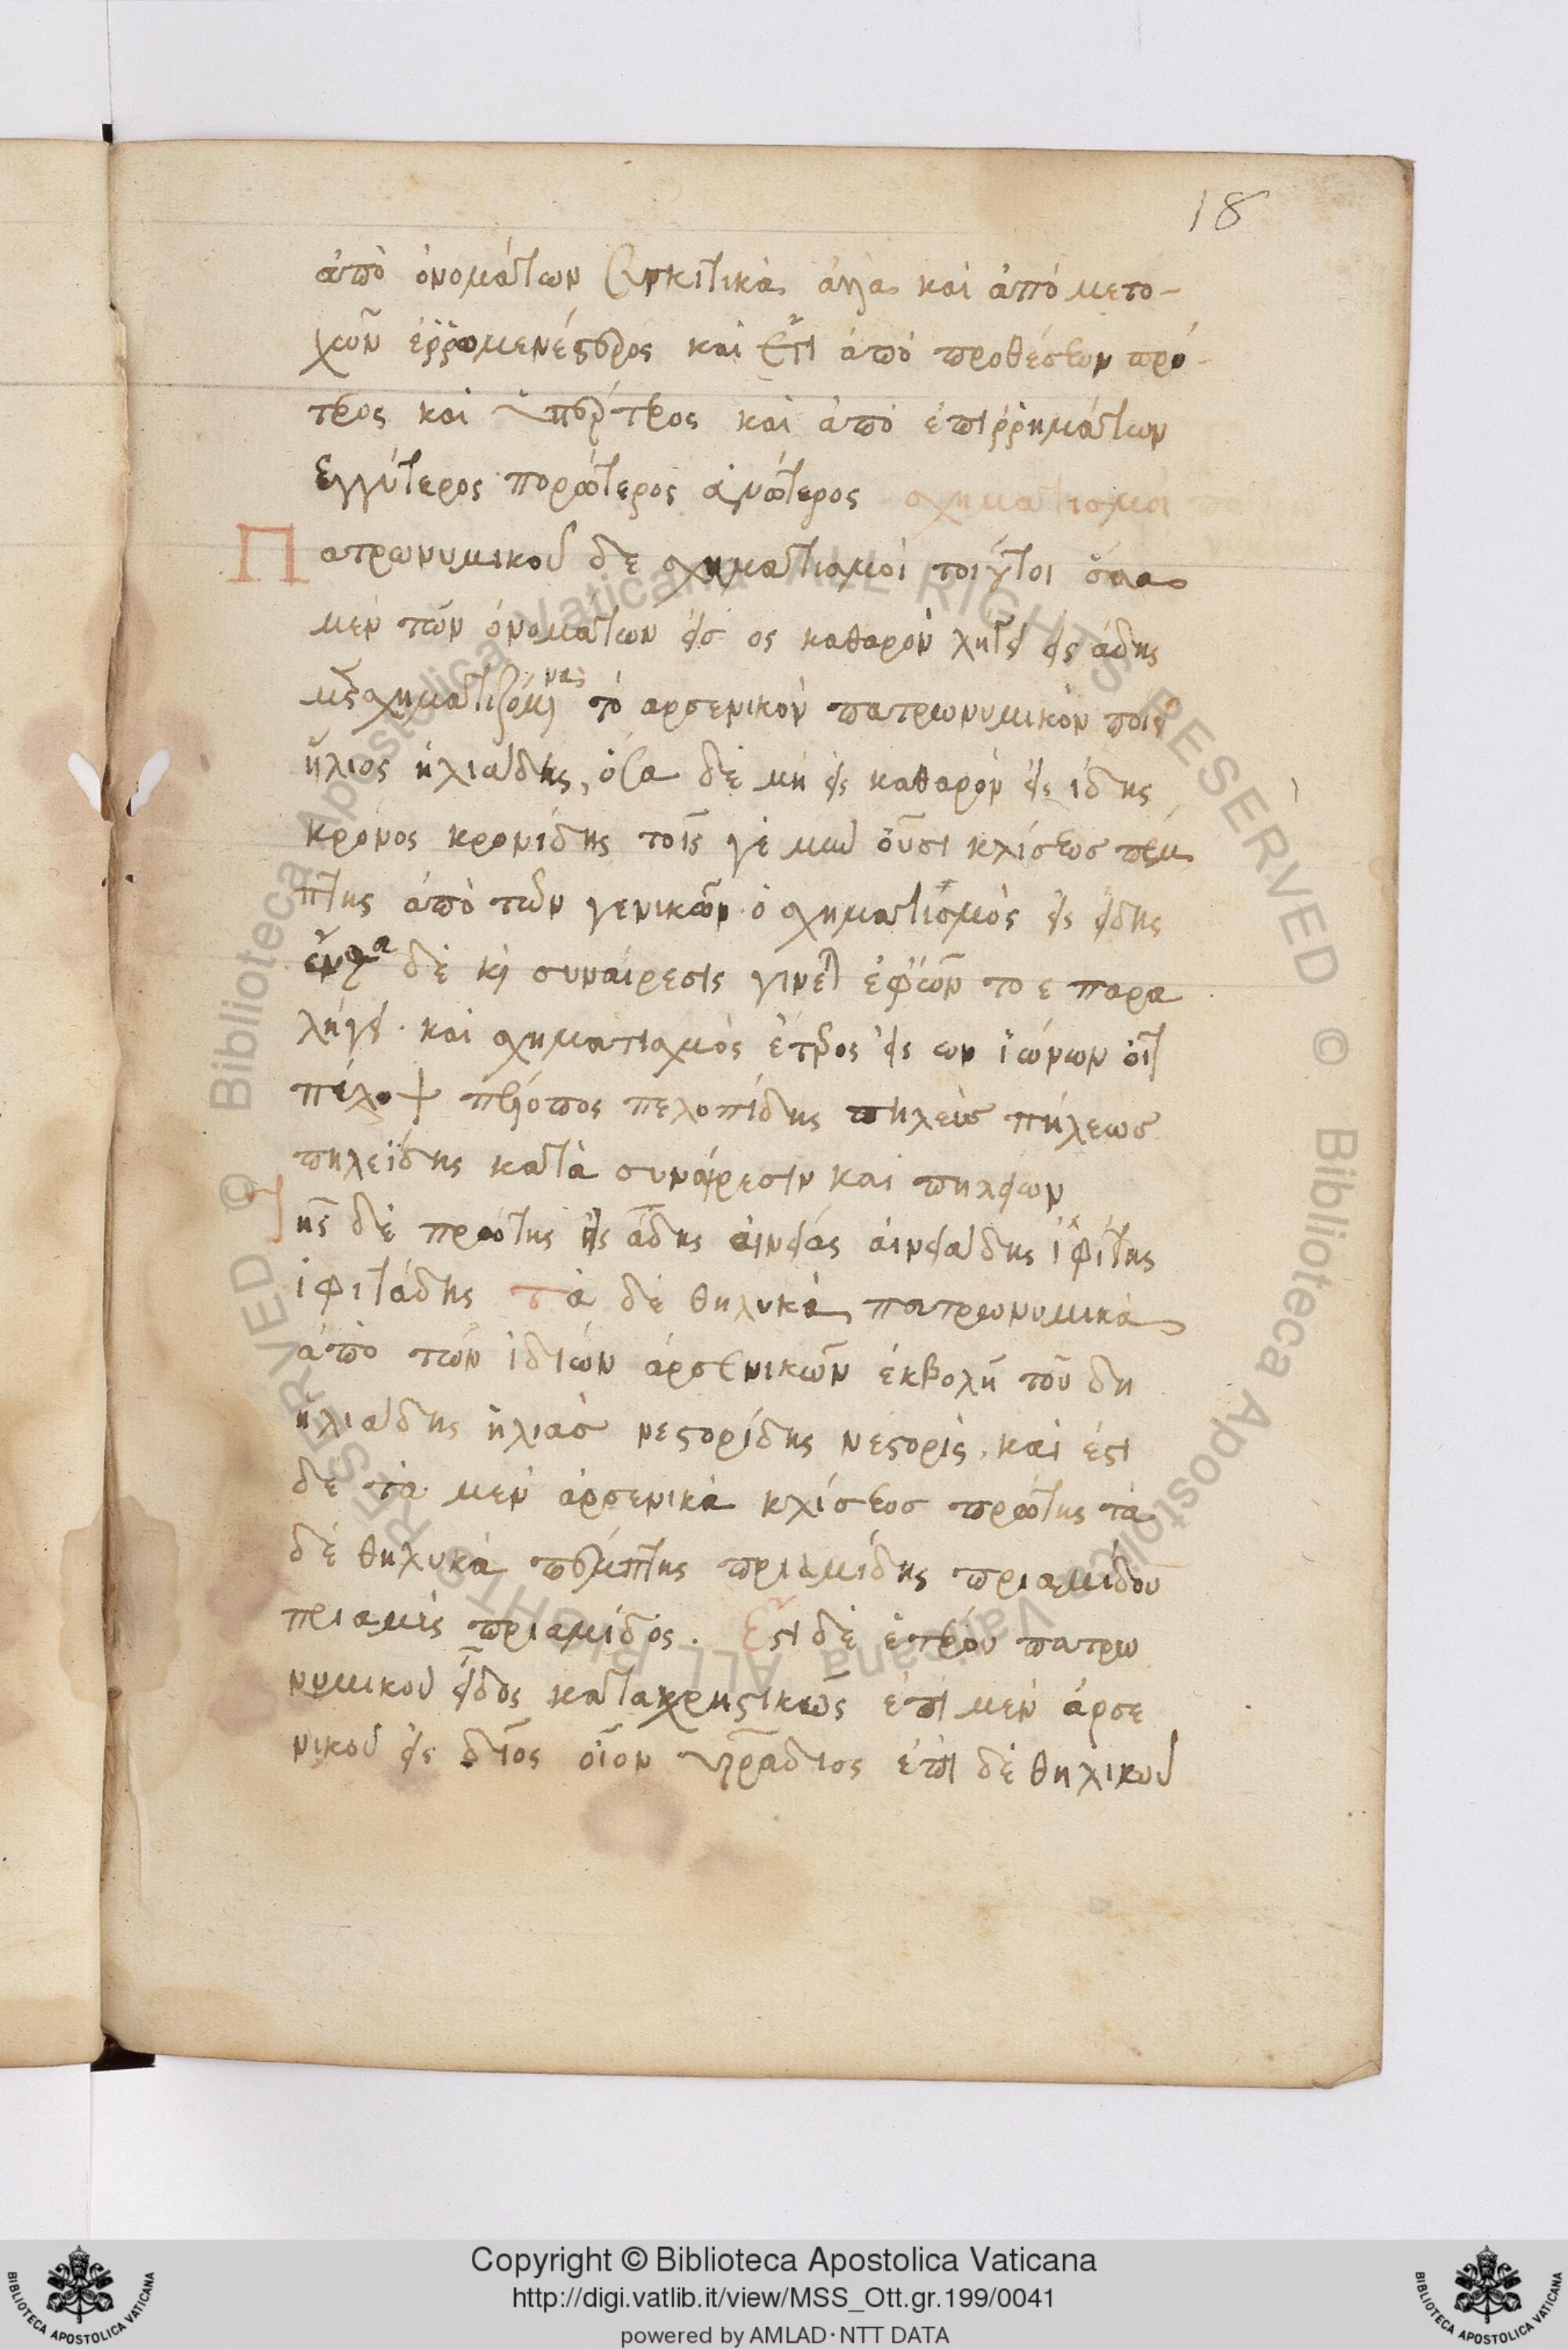 18
ἀπὸ ὀνομάτων συγκριτικὰ ἀλλὰ καὶ ἀπὸ μετο-
χῶν ἐρρωμενέστερος καὶ ἔτι ἀπὸ προθέσεων πρό-
τερος καὶ ὑπέρτερος καὶ ἀπὸ ἐπιρρημάτων
ἐγγύτερος πορρώτερος ἀνώτερος σχηματισμοὶ
Πατρωνυμικοῦ δὲ σχηματισμοὶ τοιοῦτοι ὅσα
μὲν τῶν ὀνομάτων εἰσ ος καθαρὸν λήγει εἰς άδης
μετασχηματιζόμενα τὸ αρσενικὸν πατρωνυμικὸν ποιεῖ
ἥλιος ἡλιάδης, ὅσα δὲ μὴ εἰς καθαρὸν εἰς ίδης
κρόνος κρονίδης τοῖς γὲ μὴν οὖσι κλίσεως πέμ
πτης ἀπὸ τῶν γενικῶν ὁ σχηματισμὸς εἰς είδης
ἔνθα δὲ καὶ συναίρεσις γίνεται ἐφ' ὧν το ε παρα
λήγει. καὶ σχηματισμὸς ἕτερος εἰς ων ἰώνων οἷον
πέλοψ πέλοπος πελοπίδης πηλεὺσ πήλεωσ
πηλεΐδης κατὰ συναίρεσιν καὶ πηλείων
Τῆς δὲ πρώτης εἰς άδης αἰνείας αἰνειάδης ἱφίτης
ἱφιτάδης τὰ δὲ θηλυκὰ πατρωνυμικὰ
ἀπὸ τῶν ἰδίων ἀρσενικῶν ἐκβολῆ τοῦ δη
ἡλιάδης ἡλιὰσ νεστορίδης νεστορὶς. καὶ ἔστι
δὲ τὰ μὲν ἀρσενικὰ κλίσεωσ πρώτης τὰ
δὲ θηλυκὰ πέμπτης πριαμίδης πριαμίδου
πριαμὶς πριαμίδος. Ἔστι δὲ ἕτερον πατρω
νυμικοῦ εἶδος καταχρηστικῶς ἐπὶ μὲν ἀρσε
νικοῦ εἰς διος οἷον ὑρράδιος ἐπὶ δὲ θηλικοῦ
© Biblioteca Apostolica Vaticana ALL RIGHTS RESERVED © Biblioteca Apostolica Vaticana ALL RIGHTS RESERVED
Copyright © Biblioteca Apostolica Vaticana
http://digi.vatlib.it/view/MSS_Ott.gr.199/0041
powered by AMLAD·NTT DATA
BIBLIOTECA APOSTOLICA VATICANA
BIBLIOTECA APOSTOLICA VATICANA